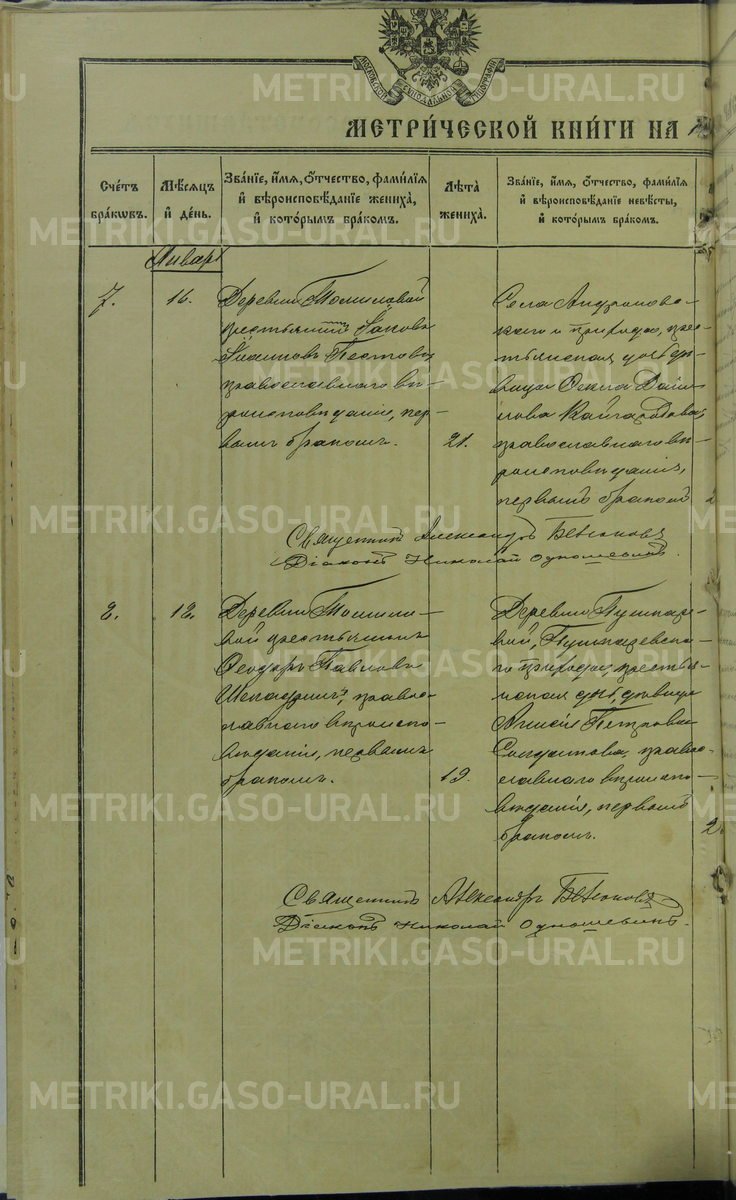 МОСКОВСКОЙ СѴНОДАЛЬНОЙ ТИПОГРАФІИ
МЕТРИ́ЧЕСКОЙ КНИ́ГИ НА
Сче́тъ
бра́ковъ.
Мѣ́сяцъ
и҆ де́нь.
Зва́нїе, и҆́мя, ѻ҆́тчество, фами́лїя
и҆ вѣроисповѣ́данїе жениха̀,
и҆ кото́рымъ бра́комъ.
Лѣта̀
жениха̀.
Зва́нїе, и҆́мя, ѻ҆́тчество, фами́лїя
и҆ вѣроисповѣ́данїе невѣ́сты,
и҆ кото́рымъ бра́комъ.
Январь
7.
16.
Деревни Томиловой
крестьянинъ Іаковъ
православнаго вѣ-
роисповѣданія, пер-
вымъ бракомъ.
21.
Села Андроновс-
каго и прихода, крес-
тьянская дочь дѣ-
вица Ѳекла Дани-
лова Кайгародова,
православнаго вѣ-
роисповѣданія,
первымъ бракомъ
Священникъ Александръ
Діаконъ Николай
2.
12.
Деревни Томило-
вой крестьянинъ
Ѳеодоръ Павловъ
право-
славнаго вѣроиспо-
вѣданія, первымъ
бракомъ.
19.
Деревни Пушкаре-
вой, Пушкаревска-
го прихода, кресть-
янская дочь, дѣвица
Анисія Петрова
Солдатова, право-
славнаго вѣроиспо-
вѣданія, первымъ
бракомъ.
2
Священникъ Александръ
Діаконъ Николай
METRIKI.GASO-URAL.RU